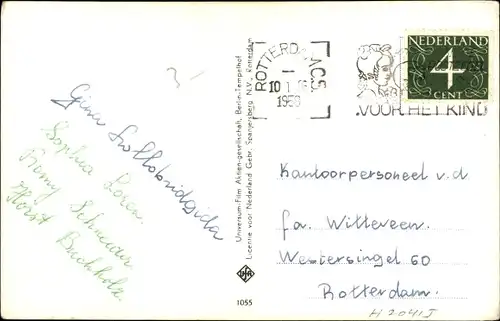 Gina Lollobridgida
Sophia Loren
Romy Schneider
Horst Buchholz
Universum-Film Aktien-gesellschaft, Berlin-Tempelhof
Licentie voor Nederland Gebr. Spanjersberg N.V., Rotterdam
UFA
1055
ROTTERDAM C.S.
10 1
1958
VOOR HET KIND
NEDERLAND
4
CENT
Kantoorpersoneel v.d
fa. Witteveen
Westersingel 60
Rotterdam.
H 2041J